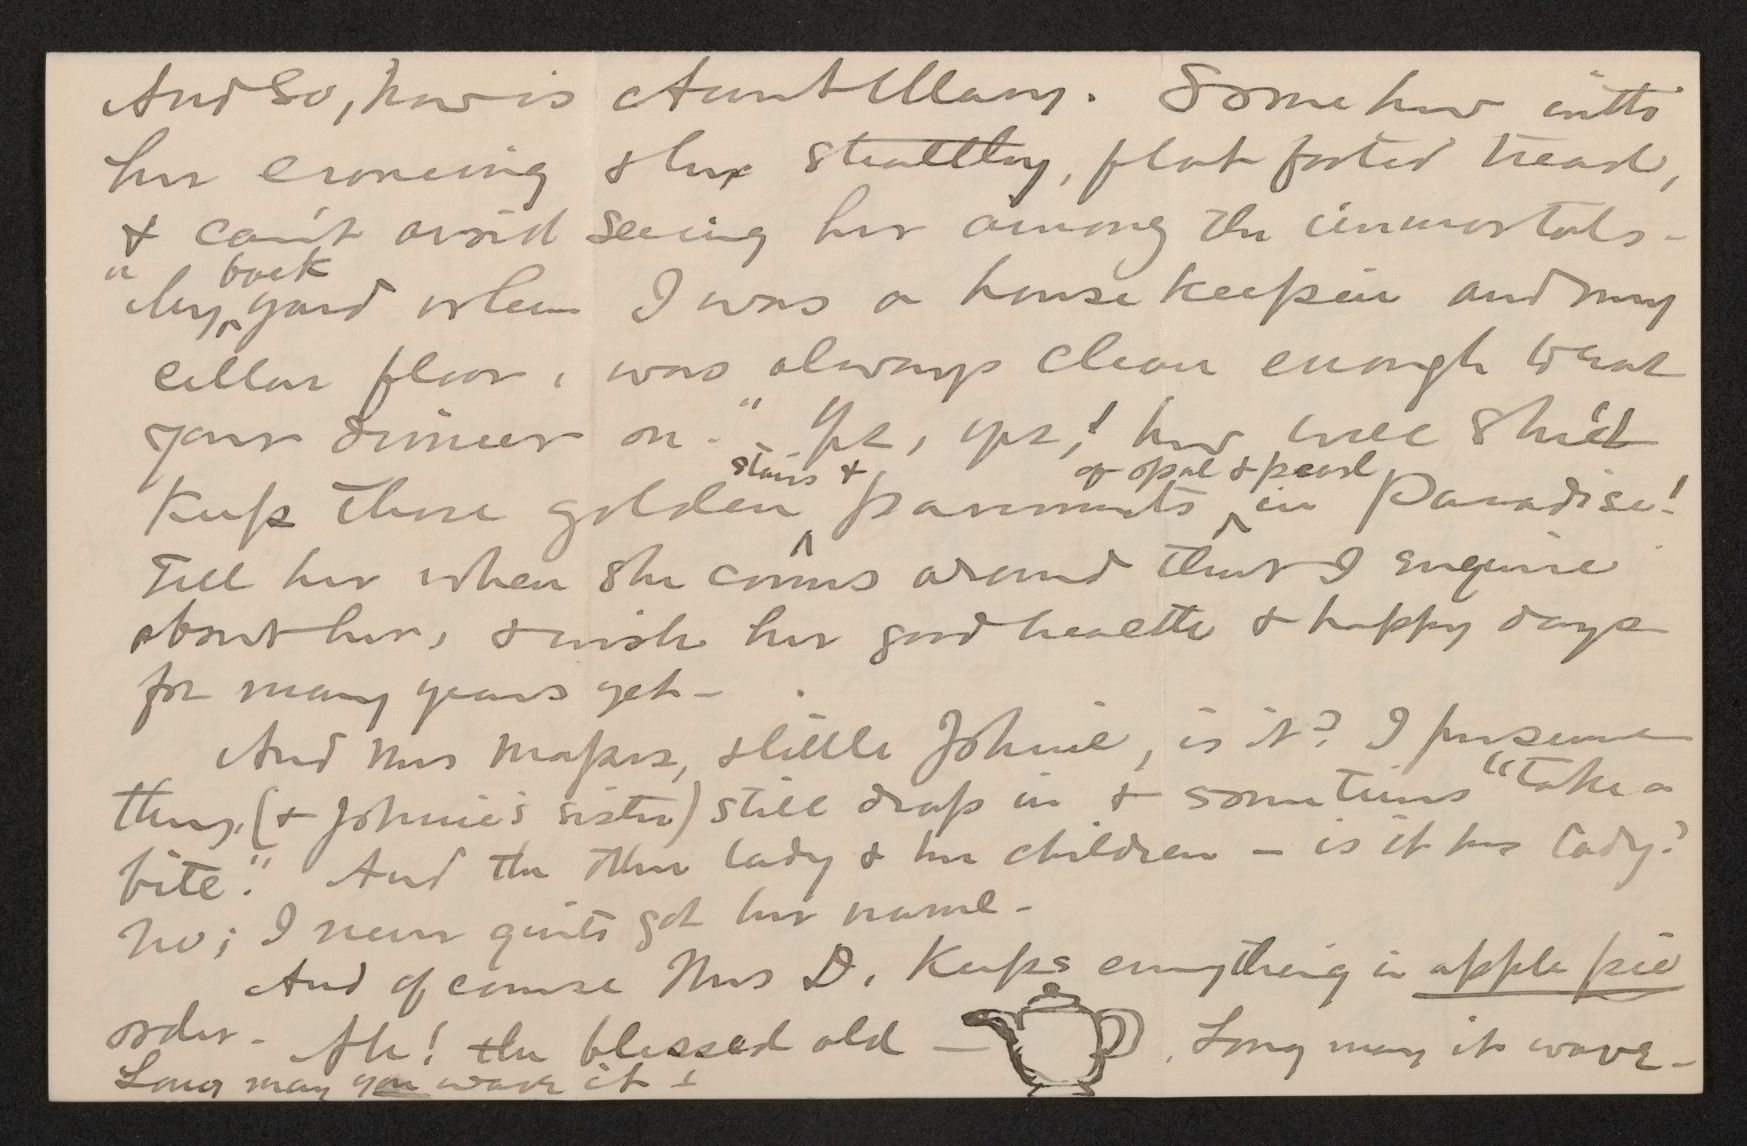 And so, how is Aunt Mary. Somehow into
her crooning & her stealthy, flat footed tread,
& can't avoid seeing her among the immortals -
"My back yard when I was a housekeepin and my
cellar floor, was always clean enough t' eat
your dinner on." Yes, yes,! how well she'd
keep those golden stairs & pavements of opal & pearl in Paradise!
Tell her when she comes around that I enquire
about her, & wish her good health & happy days
for many years yet -
And Mrs & little Johnie, is it? I presume
they, (& Johnie's sister) still drop in & sometimes "take a
bite." And the other lady & her children - is it lady?
No; I never quite got her name -
And of course Mrs D. keeps everything in apple pie
order - Ah! the blessed old — . Long may it wave -
Long may you wave it -